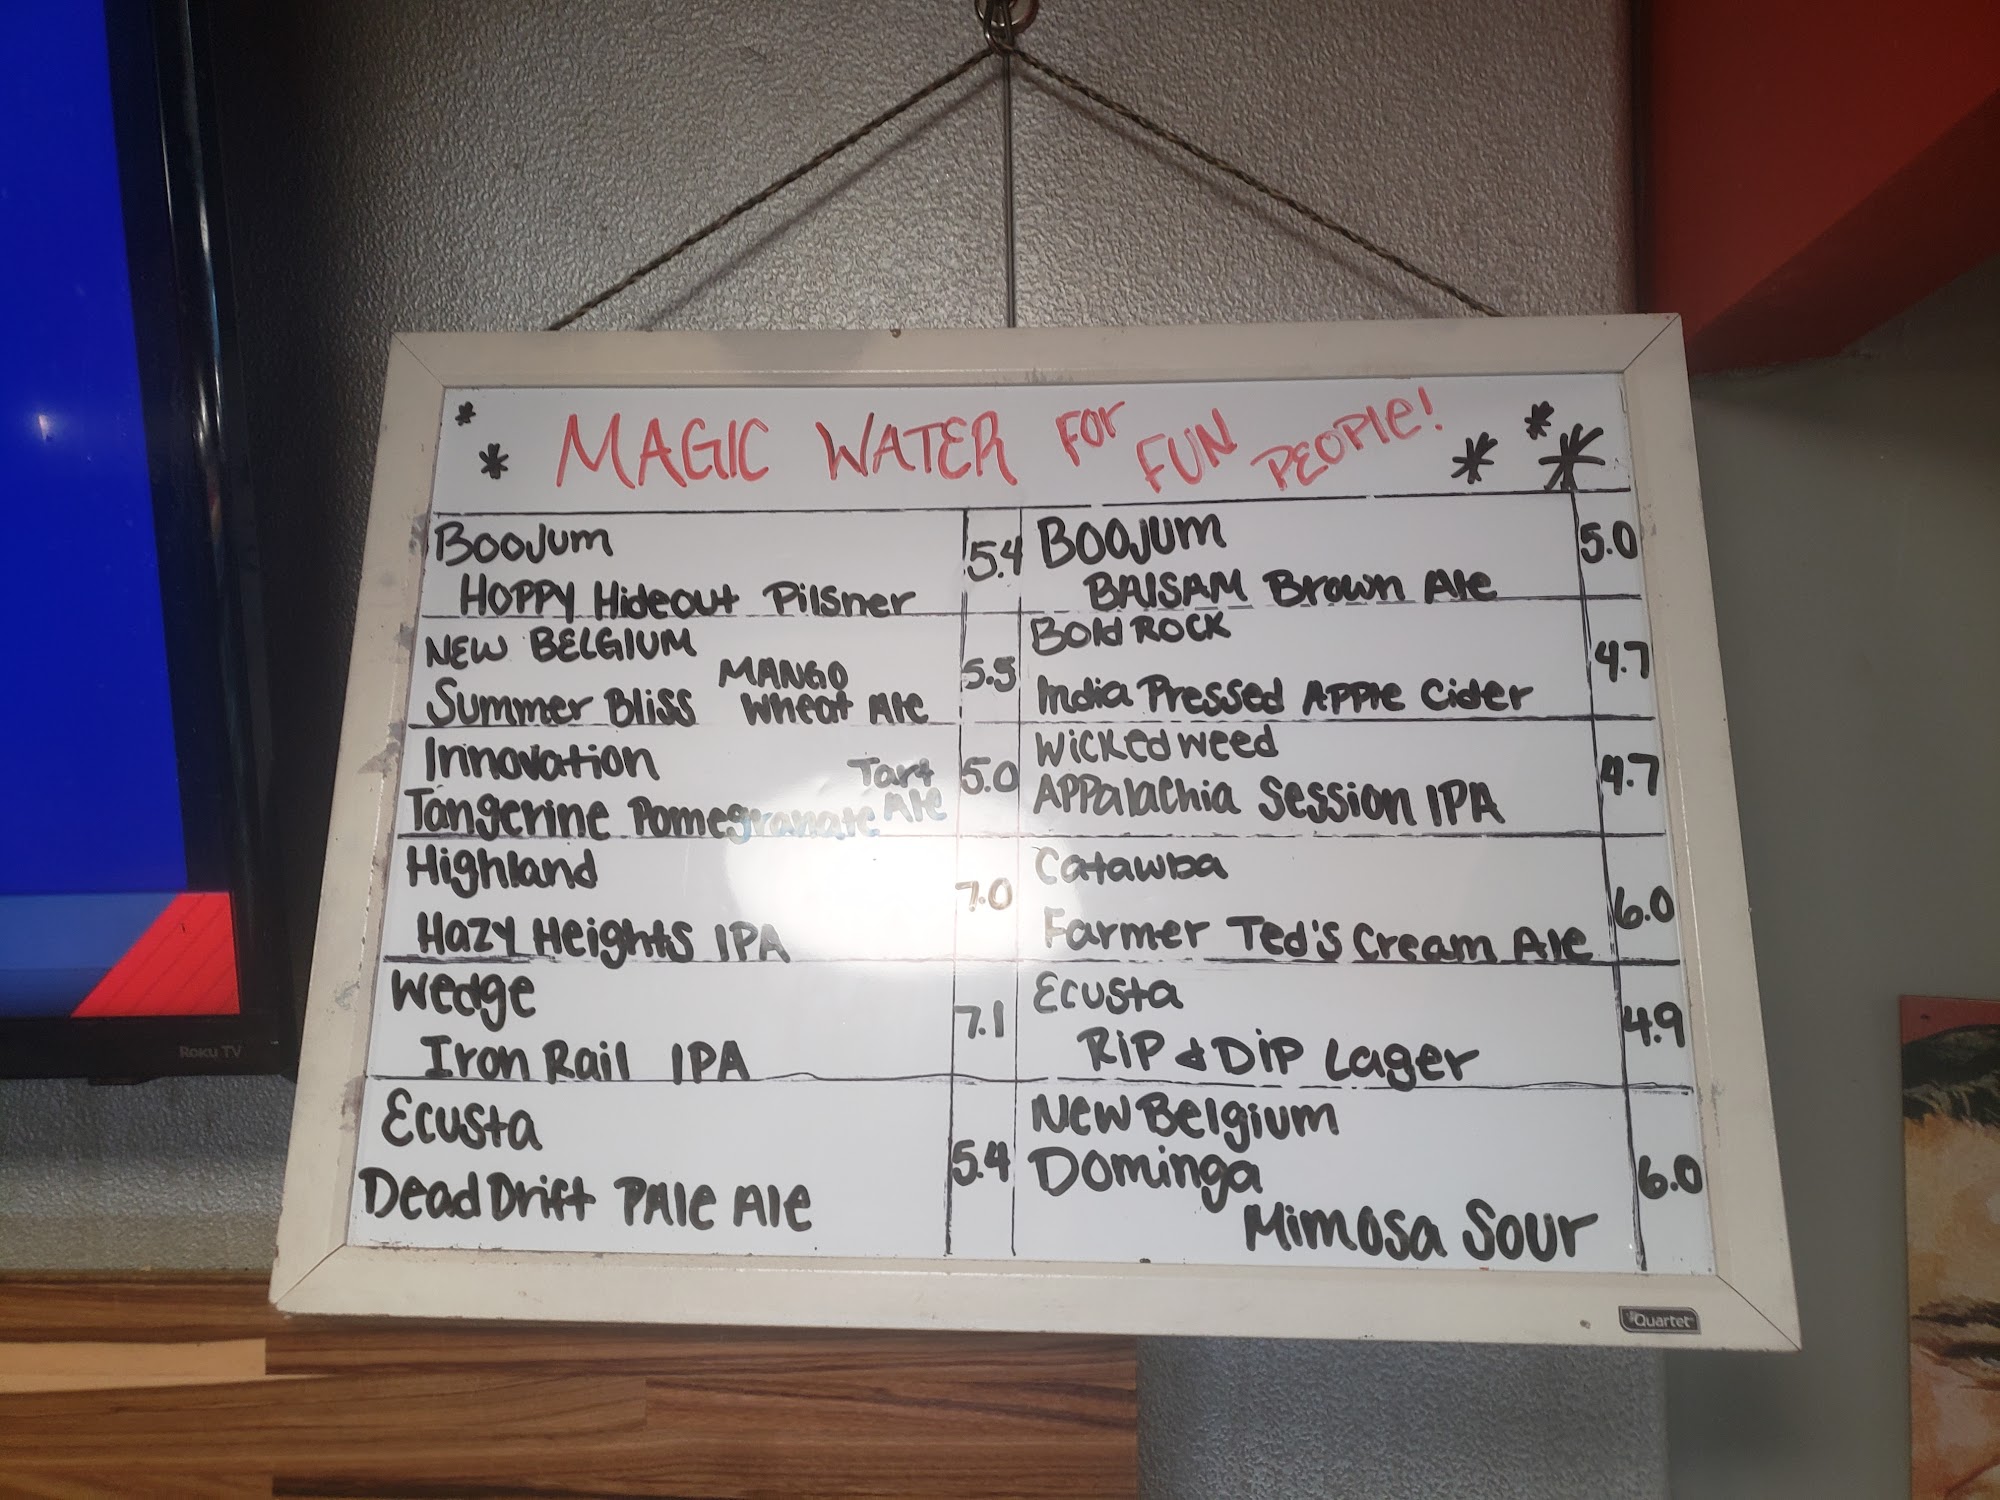 * * MAGIC WATER FOR FUN PEOPLE! * * *
BOOJUM 5.4
HOPPY Hideout Pilsner
NEW BELGIUM
MANGO 5.5
Summer Bliss Wheat Ale
Innovation Tart 5.0
Tangerine Pomegranate Ale
Highland 7.0
Hazy Heights IPA
Wedge 7.1
Iron Rail IPA
Ecusta 5.4
Dead Drift PAle Ale
BOOJUM 5.0
BAlSAM Brown Ale
Bold ROCK 4.7
India Pressed APPle Cider
Wicked weed 4.7
APPalachia Session IPA
Catawba 6.0
Farmer Ted's Cream Ale
Ecusta 4.9
RiP & DiP Lager
New Belgium
Dominga 6.0
Mimosa Sour
Quartet
Roku TV